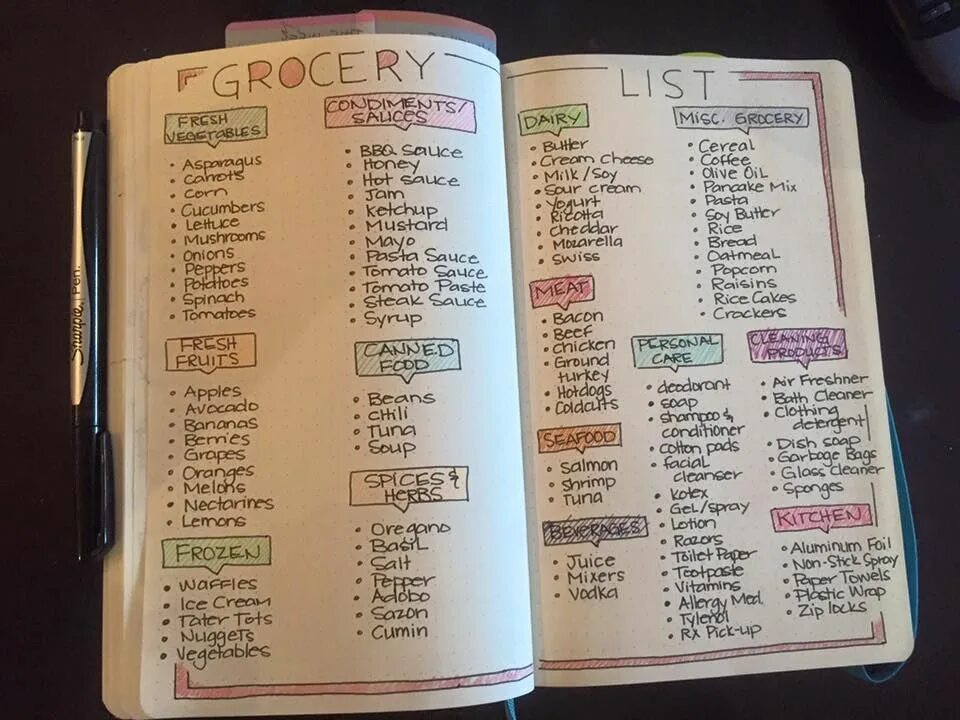 GROCERY
FRESH
VEGETABLES
• Asparagus
• Carrots
• Corn
• Cucumbers
• Lettuce
• Mushrooms
• Onions
• Peppers
• Potatoes
• Spinach
• Tomatoes
FRESH
FRUITS
• Apples
• Avocado
• Bananas
• Berries
• Grapes
• Oranges
• Melons
• Nectarines
• Lemons
FROZEN
• Waffles
• Ice Cream
• Tater Tots
• Nuggets
• Vegetables
CONDIMENTS/
SAUCES
• BBQ Sauce
• Honey
• Hot Sauce
• Jam
• Ketchup
• Mustard
• Mayo
• Pasta Sauce
• Tomato Sauce
• Tomato Paste
• Steak Sauce
• Syrup
CANNED
FOOD
• Beans
• Chili
• Tuna
• Soup
SPICES &
HERBS
• Oregano
• Basil
• Salt
• Pepper
• Adobo
• Sazon
• Cumin
LIST
DAIRY
• Butter
• Cream Cheese
• Milk/Soy
• Sour cream
• Yogurt
• Ricotta
• Cheddar
• Mozarella
• Swiss
MEAT
• Bacon
• Beef
• Chicken
• Ground
turkey
• Hotdogs
• Coldcuts
SEAFOOD
• Salmon
• Shrimp
• Tuna
BEVERAGES
• Juice
• Mixers
• Vodka
MISC. GROCERY
• Cereal
• Coffee
• Olive Oil
• Pancake Mix
• Pasta
• Soy Butter
• Rice
• Bread
• Oatmeal
• Popcorn
• Raisins
• Rice Cakes
• Crackers
PERSONAL
CARE
• deodorant
• soap
• shampoo &
conditioner
• cotton pads
• facial
cleanser
• Kotex
• Gel/spray
• Lotion
• Razors
• Toilet Paper
• Tootpaste
• Vitamins
• Allergy Med.
• Tylenol
• RX Pick-up
CLEANING
PRODUCTS
• Air Freshner
• Bath Cleaner
• Clothing
detergent
• Dish soap
• Garbage Bags
• Glass Cleaner
• Sponges
KITCHEN
• Aluminum Foil
• Non-Stick Spray
• Paper Towels
• Plastic Wrap
• Zip locks
Sharpie. Pen.